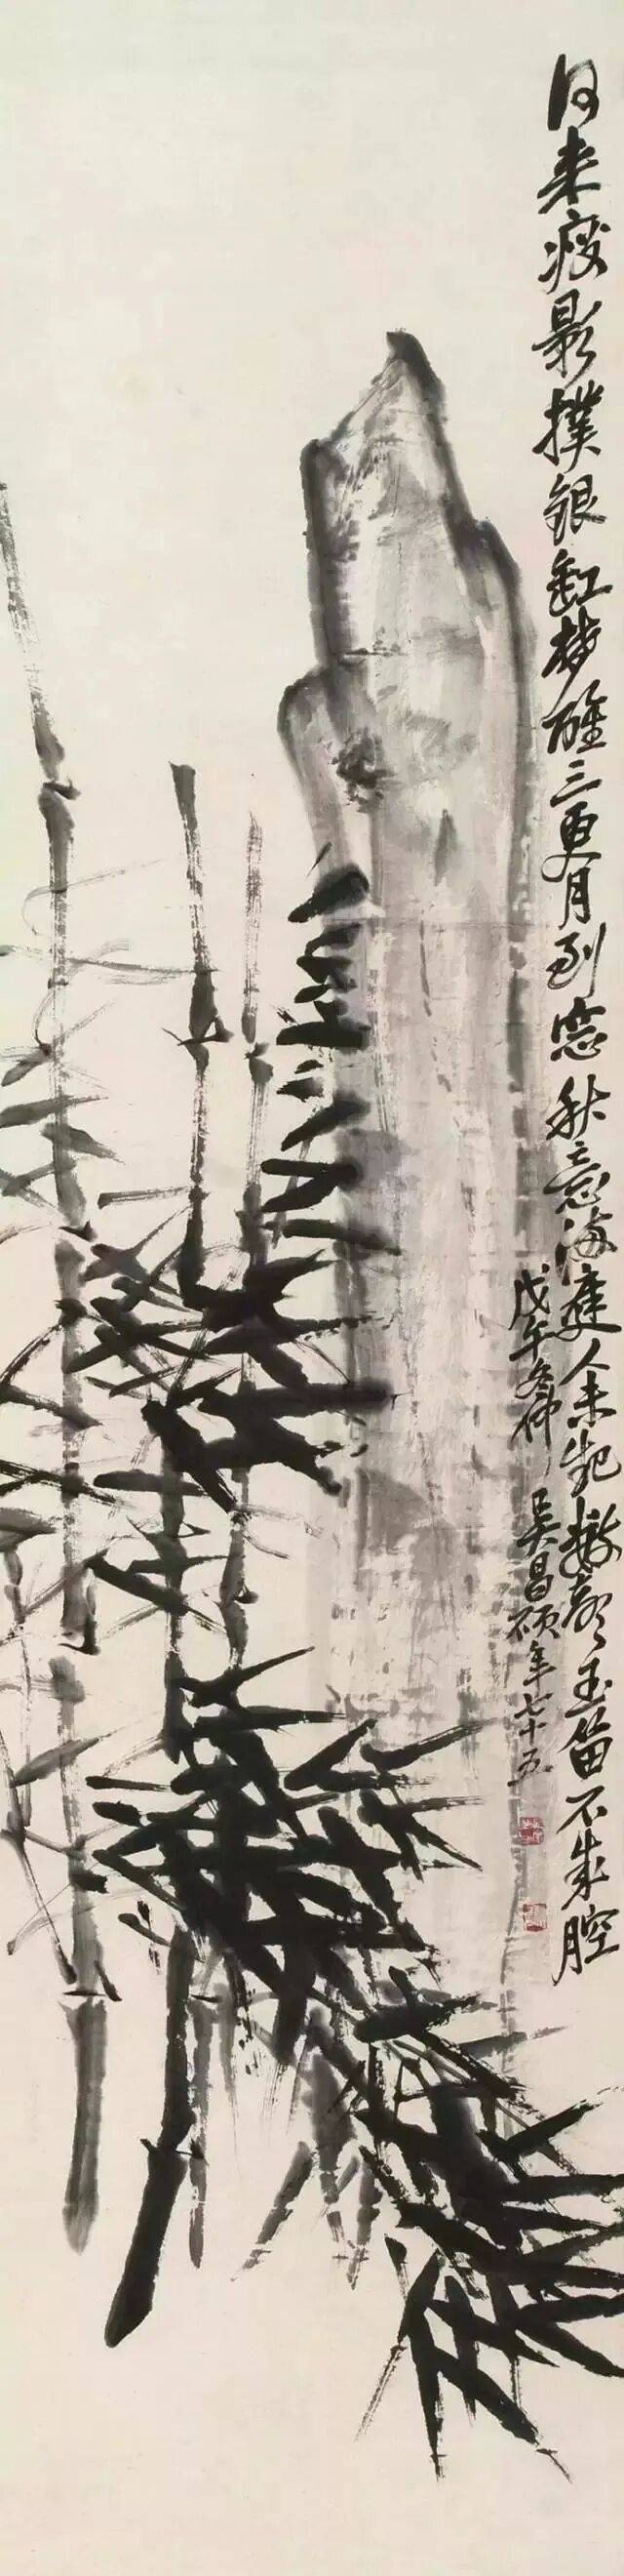 何来瘦影扑银缸梦醒三更月到窗秋意满庭人未起数声玉笛不成腔
戊午冬仲
吴昌硕年七十五